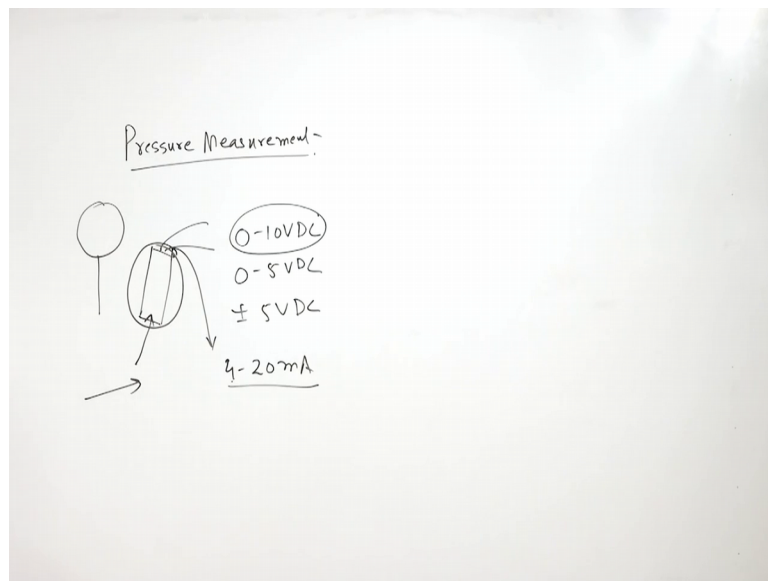 Pressure Measurement-
0-10VDC
0-5VDC
± 5VDC
4-20mA